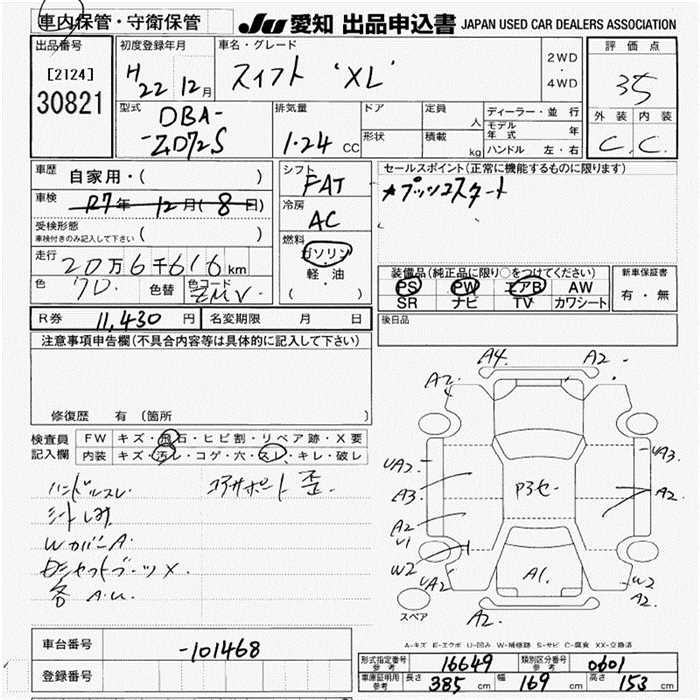 車内保管・守衛保管 JU 愛知 出品申込書 JAPAN USED CAR DEALERS ASSOCIATION
出品番号 [2124] 30821
初度登録年月 H22 12月
車名・グレード スイフト 'XL'
2WD・4WD
評価点 3.5
外装 C. 内装 C.
型式 DBA-ZD72S
排気量 1.24 CC
ドア 形状
定員 人 積載 kg
ディーラー・並行
モデル年式 年
ハンドル 左・右
車歴 自家用・( )
車検 R7年 12月(8日)
受検形態 車検付きのみ記入して下さい ( )
走行 20万6千616km
色 色替 色コード ZMV
シフト FAT
冷房 AC
燃料 ガソリン・軽・油 ( )
セールスポイント(正常に機能するものに限ります)
★プッシュスタート
装備品(純正品に限り○をつけてください)
PS PW エアB AW
SR ナビ TV カワシート
新車保証書 有・無
R券 11,430 円 名変期限 月 日
後日品
注意事項申告欄(不具合内容等は具体的に記入して下さい)
修復歴 有 (箇所 )
検査員記入欄
FW キズ・飛石・ヒビ割・リペア跡・X要
内装 キズ・汚レ・コゲ・穴・スレ・キレ・破レ
ハンドルスレ コアサポート歪.
シートしみ
WカバーA
シャフトブーツ×.
各 A.U.
A4. A2 A2. UA2 A3 A2 U1 W2 UA2 P3セ UA3 A2 W2 A2. A1. A2.
スペア
A-キズ E-エクボ U-凹み W-補修跡 S-サビ C-腐食 XX-交換済
車台番号 -101468
登録番号
形式指定番号 参考 16649 類別区分番号 参考 0601
車庫証明用 参考 長さ 385 cm 幅 169 cm 高さ 153 cm